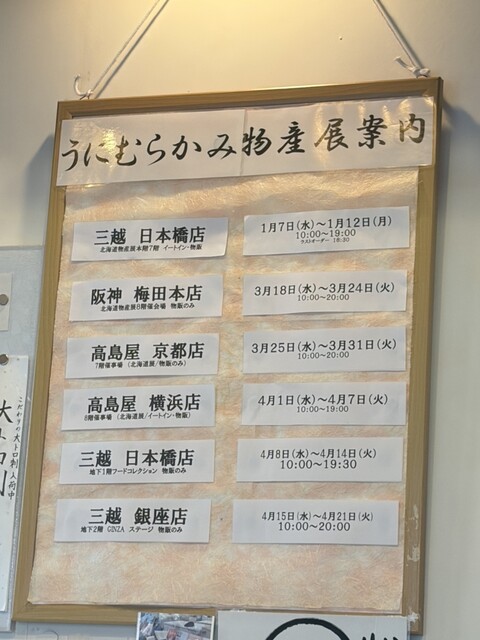 うにむらかみ物産展案内
三越 日本橋店
北海道物産展本館7階 イートイン・物販
1月7日(水)～1月12日(月)
10:00～19:00
ラストオーダー 18:30
阪神 梅田本店
北海道物産展8階催会場 物販のみ
3月18日(水)～3月24日(火)
10:00～20:00
高島屋 京都店
7階催事場 (北海道展/物販のみ)
3月25日(水)～3月31日(火)
10:00～20:00
高島屋 横浜店
8階催事場 (北海道展/イートイン・物販)
4月1日(水)～4月7日(火)
10:00～19:00
三越 日本橋店
地下1階フードコレクション 物販のみ
4月8日(水)～4月14日(火)
10:00～19:30
三越 銀座店
地下2階 GINZA ステージ 物販のみ
4月15日(水)～4月21日(火)
10:00～20:00
こだわりの大トロ刺入荷中